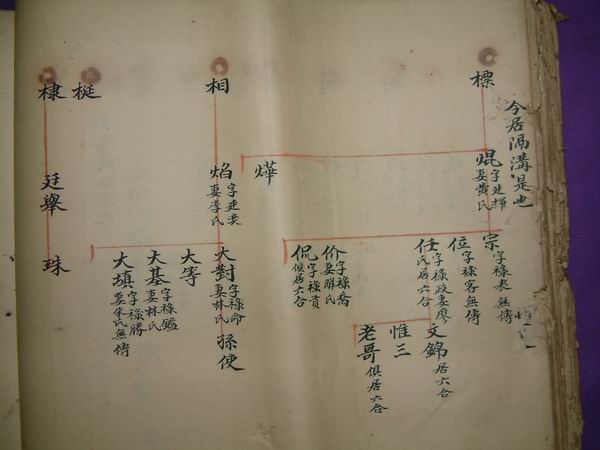 今居隔溝是也
標
焜
字廷輝
妻黄氏
宗
字祿表無傳
位
字祿客無傳
任
字祿政妻廖
氏居六合
文錦
居六合
惟三
老哥
俱居六合
价
字祿喬
妻聯氏
侃
字祿賓
俱居六合
燁
相
焰
字廷奕
妻李氏
大對
字祿命
妻林氏
孫使
大等
大基
字祿鑑
妻林氏
大填
字祿勝
妻朱氏無傳
梃
棣
廷舉
珠